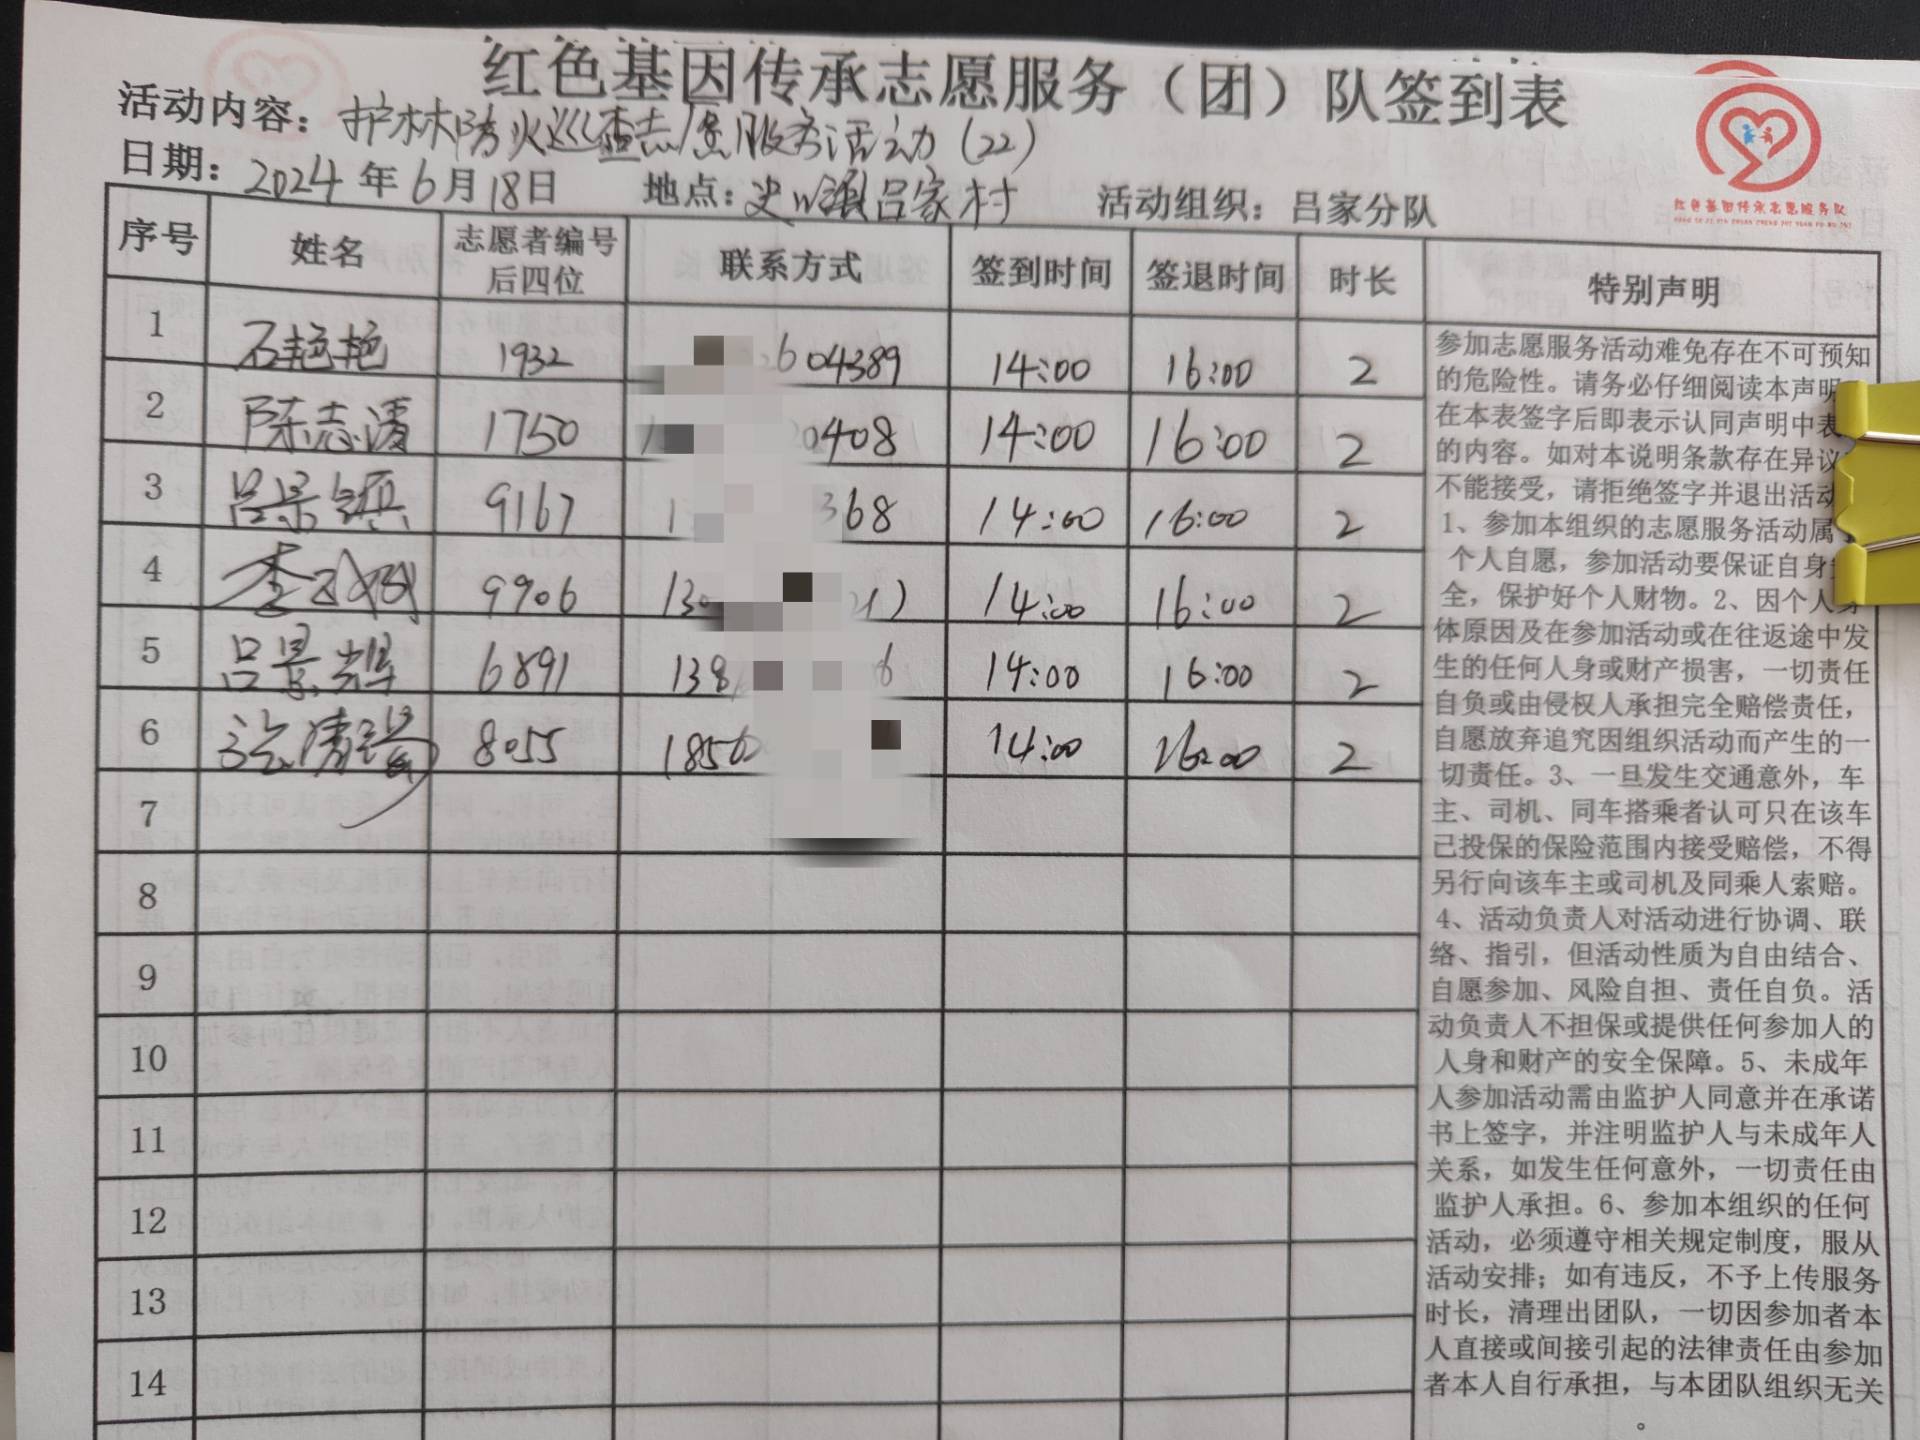 红色基因传承志愿服务（团）队签到表
活动内容：护林防火巡查志愿服务活动（22）
日期：2024年6月18日 地点：吕家村 活动组织：吕家分队
红色基因传承志愿服务队
序号 姓名 志愿者编号后四位 联系方式 签到时间 签退时间 时长 特别声明
1 石艳艳 1932 604389 14:00 16:00 2
2 陈志清 1750 0408 14:00 16:00 2
3 吕景镇 9167 368 14:00 16:00 2
4 李 9906 130 14:00 16:00 2
5 吕景辉 6891 138 6 14:00 16:00 2
6 8055 1856 14:00 16:00 2
7
8
9
10
11
12
13
14
参加志愿服务活动难免存在不可预知
的危险性。请务必仔细阅读本声明
在本表签字后即表示认同声明中表
的内容。如对本说明条款存在异议
不能接受，请拒绝签字并退出活动
1、参加本组织的志愿服务活动属
个人自愿，参加活动要保证自身
全，保护好个人财物。2、因个人身
体原因及在参加活动或在往返途中发
生的任何人身或财产损害，一切责任
自负或由侵权人承担完全赔偿责任，
自愿放弃追究因组织活动而产生的一
切责任。3、一旦发生交通意外，车
主、司机、同车搭乘者认可只在该车
已投保的保险范围内接受赔偿，不得
另行向该车主或司机及同乘人索赔。
4、活动负责人对活动进行协调、联
络、指引，但活动性质为自由结合、
自愿参加、风险自担、责任自负。活
动负责人不担保或提供任何参加人的
人身和财产的安全保障。5、未成年
人参加活动需由监护人同意并在承诺
书上签字，并注明监护人与未成年人
关系，如发生任何意外，一切责任由
监护人承担。6、参加本组织的任何
活动，必须遵守相关规定制度，服从
活动安排；如有违反，不予上传服务
时长，清理出团队，一切因参加者本
人直接或间接引起的法律责任由参加
者本人自行承担，与本团队组织无关
。